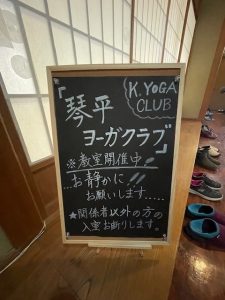 K.YOGA
CLUB
『琴平
ヨーガクラブ』
※教室開催中!
…お静かに!!
お願いします.....
★関係者以外の方の
入室お断りします。